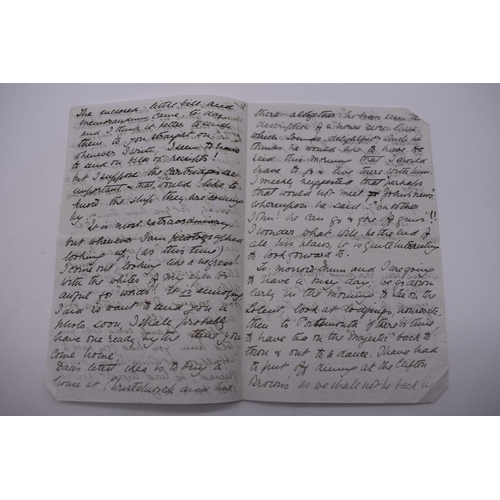 The enclosed little bill and
memorandum came to day
and I think it better to send
them to you straight on
whenever I write, I seem to have
to send on bills or receipts!
but I suppose the cartridges are
important – that would like to
know the ship they are coming
by. It is most extraordinary
but whenever I am photographed
looking up, (as this time)
I come out looking like a negress!
with the whites of my eyes too
awful for words! It is annoying
I did so want to send you a
photo soon, I shall probably
have one ready by the time you
come home.
Dad's latest idea is to buy a
house at Christchurch and
there altogether he has seen the
description of a house
which sounds delightful which he
thinks he would like to have He
said this morning that I should
have to go & live there with him.
I merely suggested that perhaps
that would not meet John's views
whereupon he said "Oh bother
John! he can go & be
I wonder what will be the end of
all his plans, it is quite interesting
to look forward to.
To morrow Mum and I are going
to have a busy day, we go down
early in the morning to
look at lodgings
then to Portsmouth if there is time
to have tea on the Majestic back to
town & out to a dance. I have had
to put off dining at the Clifton
Browns as we shall not be back